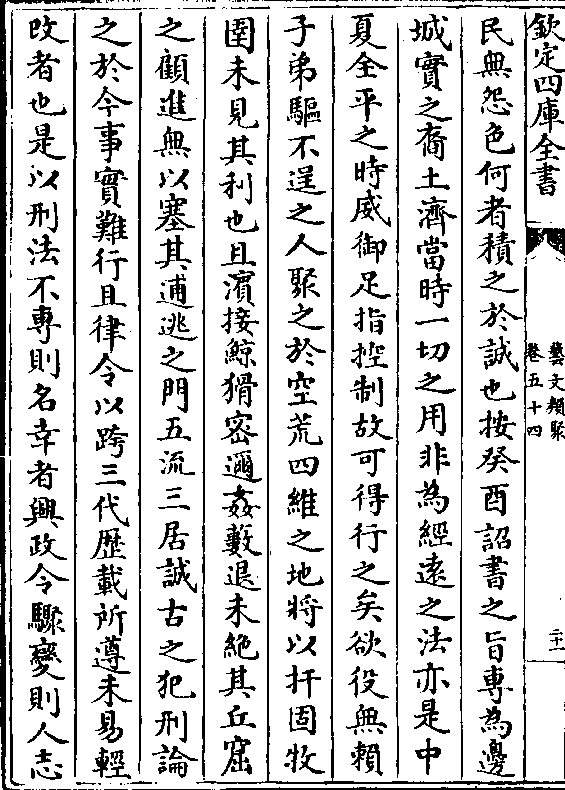 欽定四庫全書
藝文類聚
卷五十四
二十一
民無怨色何者積之於誠也按癸酉詔書之旨専為邊
城實之裔土濟當時一切之用非為經逺之法亦是中
夏全平之時威御足指控制故可得行之矣欲役無賴
子弟驅不逞之人聚之於空荒四維之地將以扞固牧
圉未見其利也且濵接鯨猾密邇姦藪退未絶其丘窟
之顧進無以塞其逋逃之門五流三居誠古之犯刑論
之於今事實難行且律令以跨三代歴載所遵未易輕
改者也是以刑法不専則名幸者興政令驟變則人志